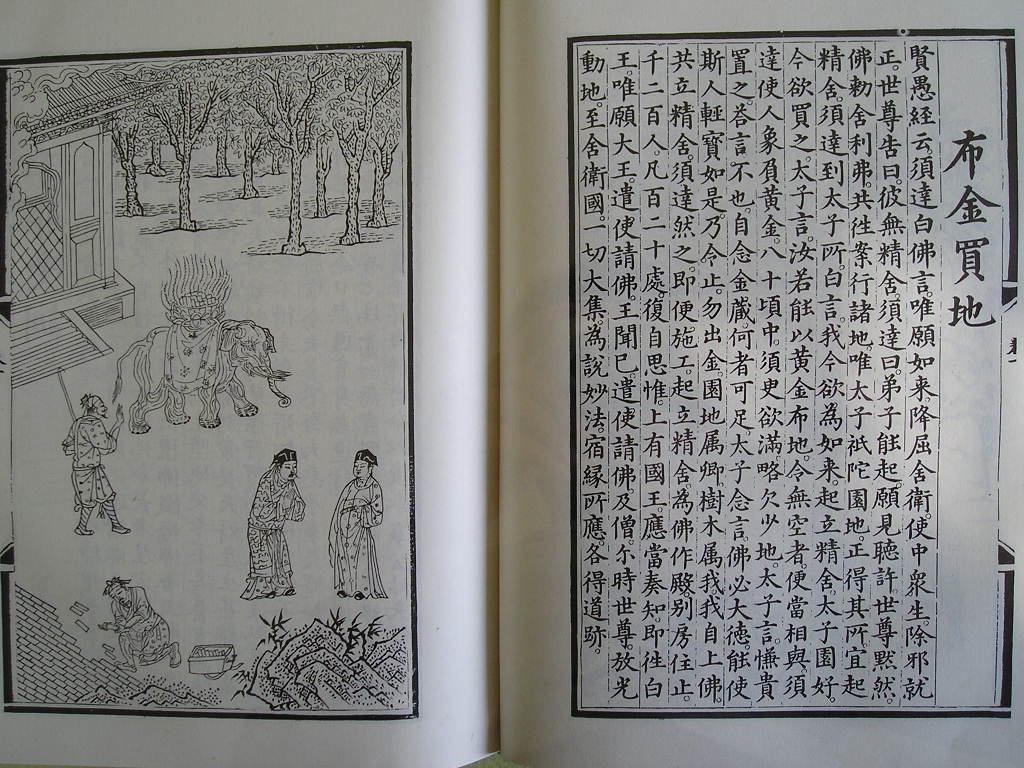 布金買地
賢愚經云。須達白佛言。唯願如来。降屈舍衛。使中衆生。除邪就
正。世尊告曰。彼無精舍。須達曰。弟子能起。願見聽許。世尊黙然。
佛勑舍利弗。共徃案行諸地。唯太子祇陀園地。正得其所。宜起
精舍。須達到太子所。白言。我今欲為如来。起立精舍。太子園好。
今欲買之。太子言。汝若能以黄金布地。令無空者。便當相與。須
達使人象負黄金。八十頃中。須臾欲滿。略欠少地。太子言。慊貴
置之。荅言。不也。自念金藏。何者可足。太子念言。佛必大德。能使
斯人輕寶如是。乃令止。勿出金。園地属卿。樹木属我。我自上佛。
共立精舍。須達然之。即便施工。起立精舍。為佛作殿。别房住止。
千二百人。凡百二十處。復自思惟。上有國王。應當奏知。即徃白
王。唯願大王。遣使請佛。王聞已。遣使請佛及僧。尒時世尊。放光
動地。至舍衛國。一切大集。為說妙法。宿緣所應。各得道跡。